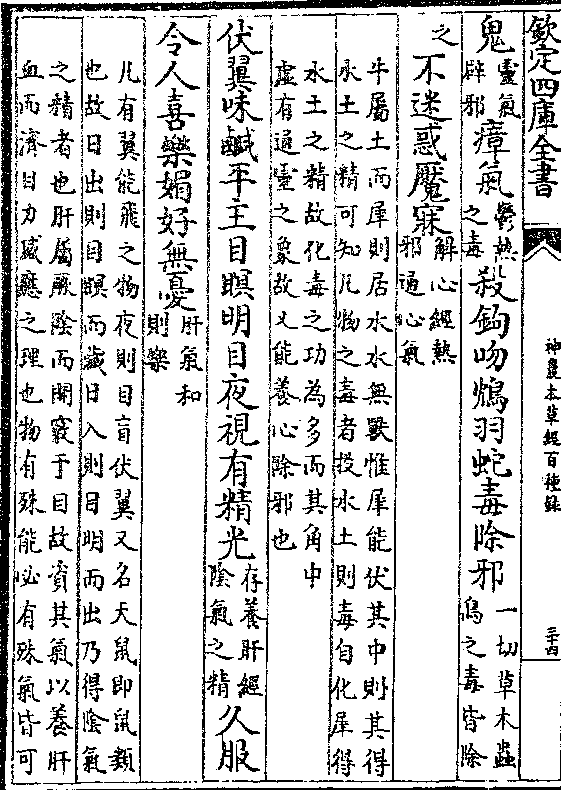 欽定四庫全書
神農本草經百種錄
三十四
鬼靈氣辟邪瘴氣鬱熱之毒殺鉤吻鴆羽蛇毒除邪一切草木蟲鳥之毒皆除
之不迷惑魘寐解心經熱邪通心氣
牛屬土而犀則居水水無獸惟犀能伏其中則其得
水土之精可知凡物之毒者投水土則毒自化犀得
水土之精故化毒之功為多而其角中
虛有通靈之象故又能養心除邪也
伏翼味鹹平主目瞑明目夜視有精光存養肝經陰氣之精久服
令人喜樂媚好無憂肝氣和則樂
凡有翼能飛之物夜則目盲伏翼又名天鼠即鼠類
也故日出則目瞑而藏日入則目明而出乃得陰氣
之精者也肝屬厥陰而開竅于目故資其氣以養肝
血而濟目力感應之理也物有殊能必有殊氣皆可